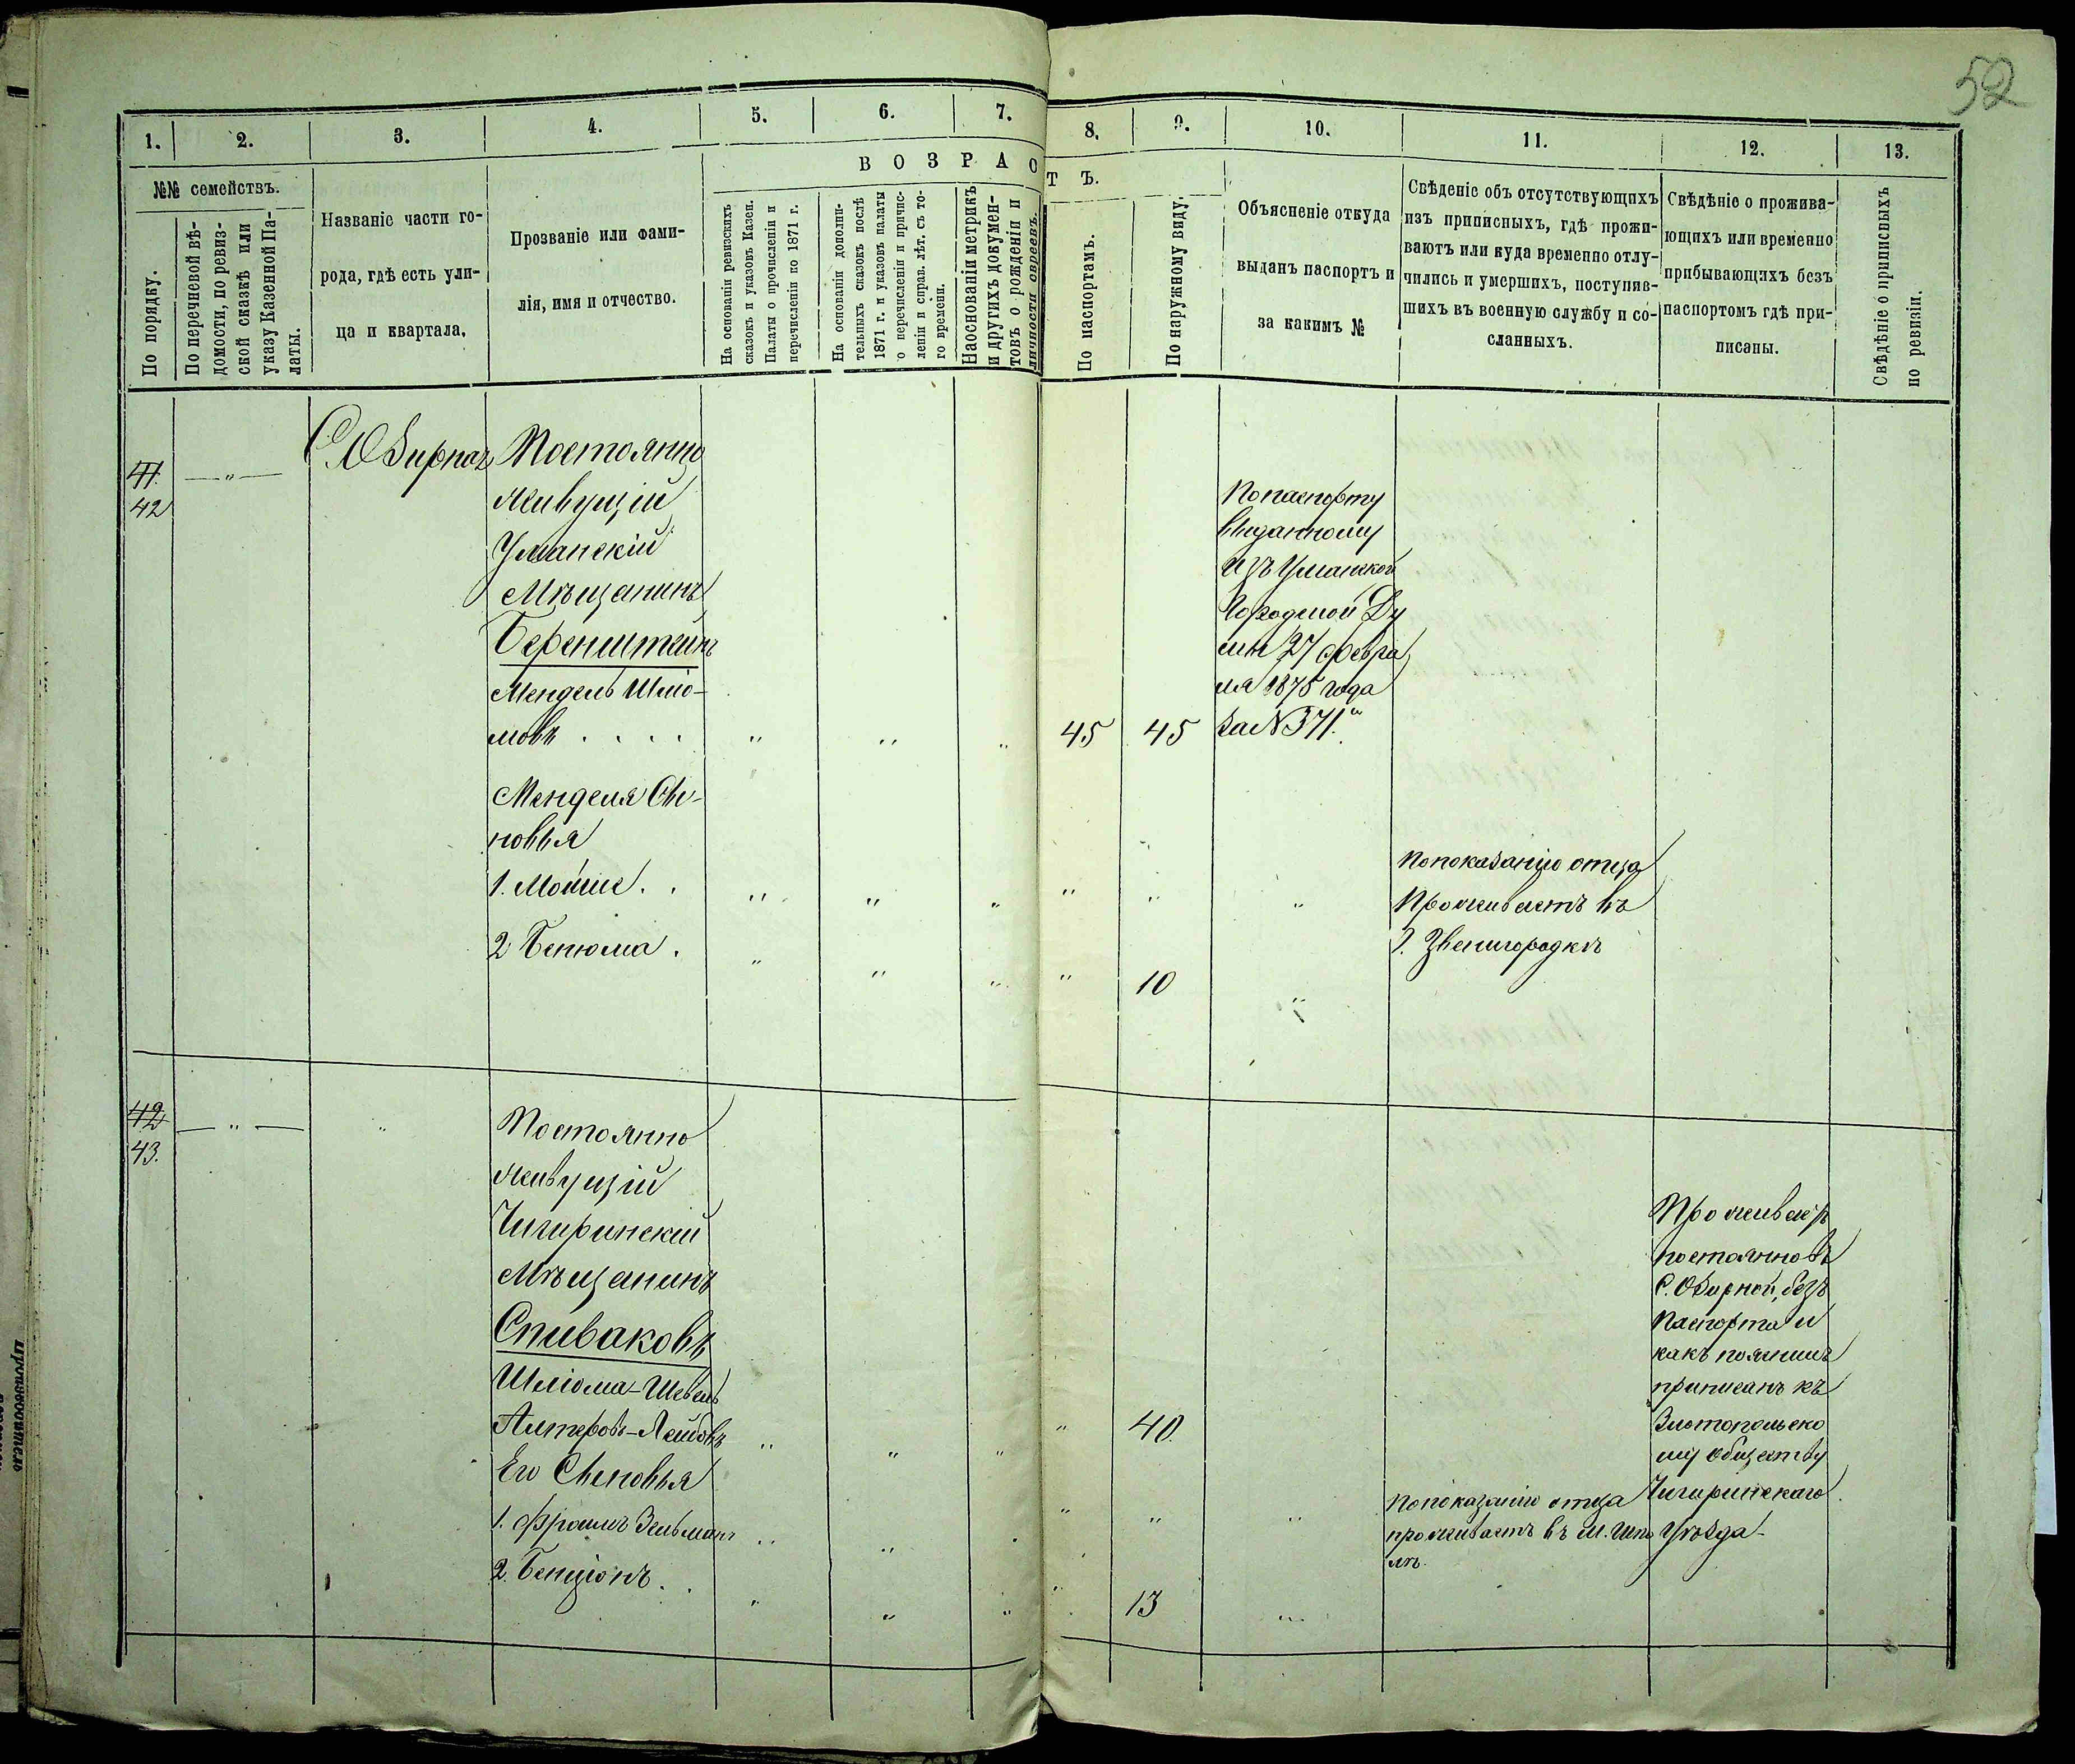 52
1. 2. 3. 4. 5. 6. 7. 8. 9. 10. 11. 12. 13.
№№ семействъ.
По порядку.
По перечневой вѣ-
домости, по ревиз-
ской сказкѣ или
указу Казенной Па-
латы.
Названіе части го-
рода, гдѣ есть ули-
ца и квартала.
Прозваніе или фами-
лія, имя и отчество.
ВОЗРАСТЪ.
На основаніи ревизскихъ
сказокъ и указовъ Казен.
Палаты о прочисленіи и
перечисленіи по 1871 г.
На основаніи дополни-
тельныхъ сказокъ послѣ
1871 г. и указовъ палаты
о перечисленіи и причис-
леніи и справ. лѣт. съ то-
го времени.
На основаніи метрикъ
и другихъ докумен-
товъ о рожденіи и
личности евреевъ.
По паспортамъ.
По наружному виду.
Объясненіе откуда
выданъ паспортъ и
за какимъ №
Свѣденіе объ отсутствующихъ
изъ приписныхъ, гдѣ прожи-
ваютъ или куда временно отлу-
чились и умершихъ, поступив-
шихъ въ военную службу и со-
сланныхъ.
Свѣдѣніе о прожива-
ющихъ или временно
прибывающихъ безъ
паспортомъ гдѣ при-
писаны.
Свѣдѣніе о приписныхъ
по ревизіи.
41.
42
— " —
С. Озирная
Постоянно
живущій
Уманскій
Мѣщанинъ
Беренштейнъ
Мендель Шліо-
мовъ . . . .
" " " 45 45
По паспорту
выданному
изъ Уманской
Городской Ду
мы 27 февра
ля 1875 года
за № 371.
Менделя Сы-
новья
1. Мойше . .
" " " " " "
По показанію отца
Проживаетъ въ
г. Звенигородкѣ
2 Бенюма .
" " " " 10 "
42
43.
— " — "
Постоянно
живущій
Чигиринскій
Мѣщанинъ
Спиваковъ
Шліома-Шевель
Алтеровъ-Лейбовъ
" " " " 40.
Проживаетъ
постоянно въ
С. Озирной, безъ
паспорта и
какъ
приписанъ къ
Златопольско
му обществу
Чигиринскаго
Уѣзда-
Его Сыновья
1. Фроимъ Зельманъ
" " " " "
По показанію отца
проживаетъ въ м. Шпо
лѣ.
2. Бенціонъ . .
" " " " 13 "